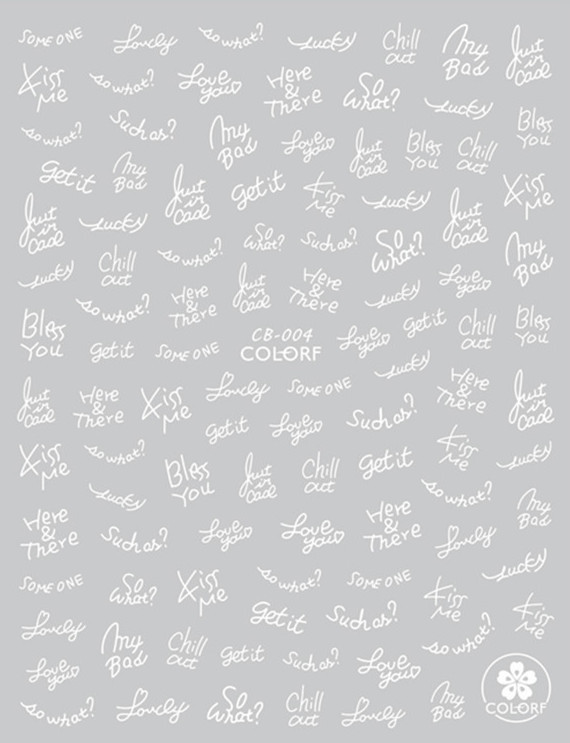 SOME ONE
Lovely
so what?
Lucky
Chill
out
My
Bad
Just
in
Case
Kiss
Me
so what?
Love
you
Here
&
There
So
What?
Lucky
Bless
You
so what?
Such as?
My
Bad
Love
you
Just
in
Case
Bless
You
Chill
out
Get it
My
Bad
Just
in
Case
Get it
Kiss
Me
Lucky
Just
in
Case
Kiss
Me
Just
in
Case
Lucky
so what?
So
What?
Such as?
So
What?
My
Bad
Lucky
Chill
out
so what?
Here
&
There
Just
in
Case
Here
&
There
Lucky
Love
you
Bless
You
Get it
SOME ONE
CB-004
COLORF
Love
you
Get it
Chill
out
Bless
You
Just
in
Case
Here
&
There
Kiss
Me
Lovely
SOME ONE
Lucky
Here
&
There
Just
in
Case
Get it
Love
you
Such as?
Kiss
Me
so what?
Lucky
Bless
You
Just
in
Case
Chill
out
Get it
Kiss
Me
so what?
Lucky
Here
&
There
Such as?
Love
you
Love
you
Here
&
There
Lovely
My
Bad
SOME ONE
So
What?
Kiss
Me
so what?
SOME ONE
Lucky
Lovely
Get it
Such as?
Kiss
Me
Kiss
Me
My
Bad
Chill
out
Get it
Such as?
Love
you
so what?
Love
you
so what?
Lovely
So
What?
Chill
out
Lovely
My
Bad
COLORF